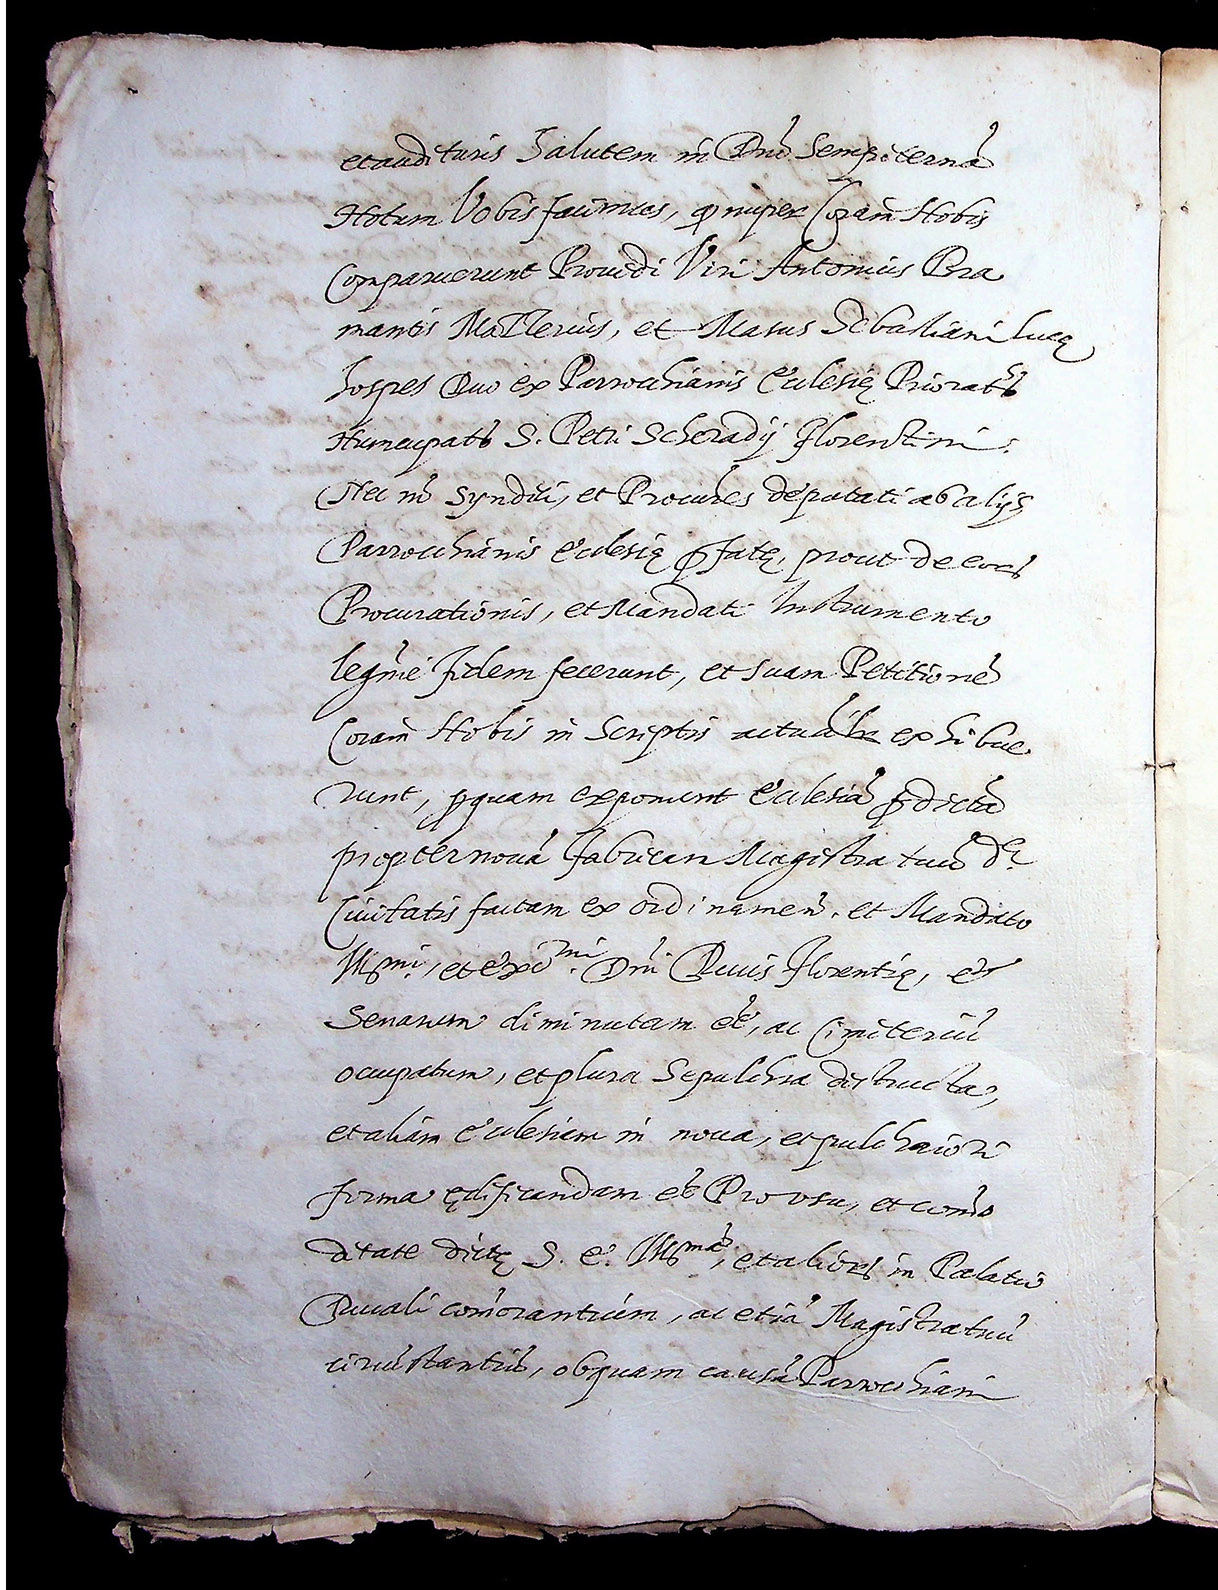 et audituris Salutem in Dnõ Sempiternã
Notum Vobis facimus, qȝ nuper Coram Nobis
Comparuerunt Prouidi Viri Antonius Bra
mantis Matterius, et Masus Sebastiani lucę
hospes Duo ex Parrochianis Ecclesię Prioratȝ
Nuncupatȝ S. Petri Scheradij Florentini:
Nec nõ Syndici, et Procures deputati ab alijs
Parrochianis Ecclesię p̃fatę, prout de eorȝ
Procurationis, et Mandati Instrumento
legmẽ fidem fecerunt, et suam Petitionẽ
Coram Nobis in Scriptis exhibue
runt, p quam exponunt Ecclesiã p̃dictã
propter nouã Fabricam Magistratuũ de.
Ciuitatis factam ex ordinamen. et Mandato
Illmi, et Excmi. Dnĩ Ducis Florentię, et
Senarum diminutam eẽ, ac Cimiteriũ
occupatum, et plura Sepulchra destructa,
et aliam Ecclesiam in noua, et pulchriori
forma ędificandam eẽ Pro usu, et com̃o
ditate dictę S. E. Illmæ, et aliorȝ in Palatio
Ducali com̃orantium, ac etiã Magistratuũ
circũstantiũ, ob quam causã Parrochiani